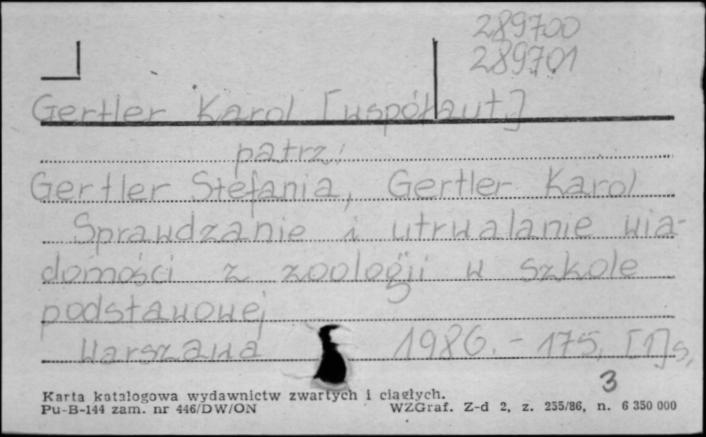 289700
289701
Gertler Karol [współaut.]
patrz:
Gertler Stefania, Gertler Karol
Sprawdzanie i utrwalanie wia-
domości z zoologii w szkole
podstawowej
Warszawa 1986. - 175, [1]s.
3
Karta katalogowa wydawnictw zwartych i ciągłych.
Pu-B-144 zam. nr 446/DW/ON WZGraf. Z-d 2, z. 255/86, n. 6 350 000